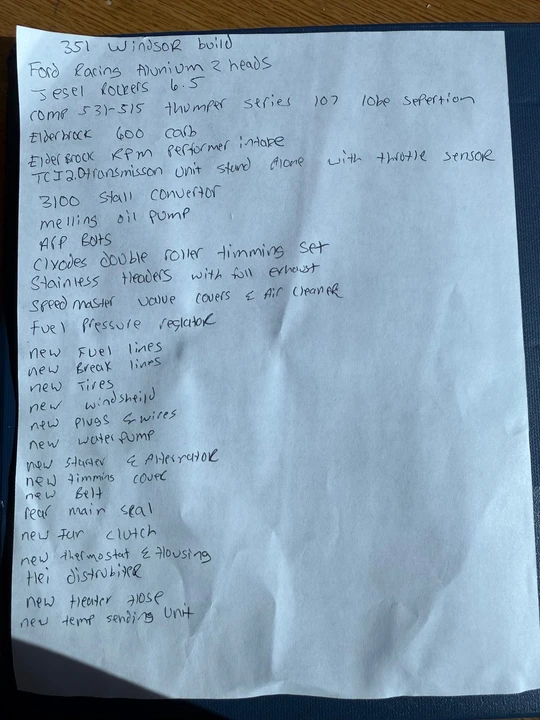 351 Windsor build
Ford Racing Alunium 2 heads
Jesel Rockers 6.5
comp 531-515 thumper series 107 lobe sepertion
Elderbrock 600 carb
Elderbrock RPM Performer intake
TCI2.0transmisson unit stand alone with throtle sensor
3100 stall convertor
melling oil pump
ARP Bolts
Clyodes double roller timming set
Stainless Headers with full exhaust
Speedmaster value covers & Air Cleaner
Fuel Pressure reglator
new Fuel lines
new Break lines
new Tires
new windsheild
new plugs & wires
new waterpump
new starter & Alternator
new timming cover
new Belt
rear main seal
new Fan clutch
new thermostat & Housing
Hei distrubiter
new Heater Hose
new temp sending unit